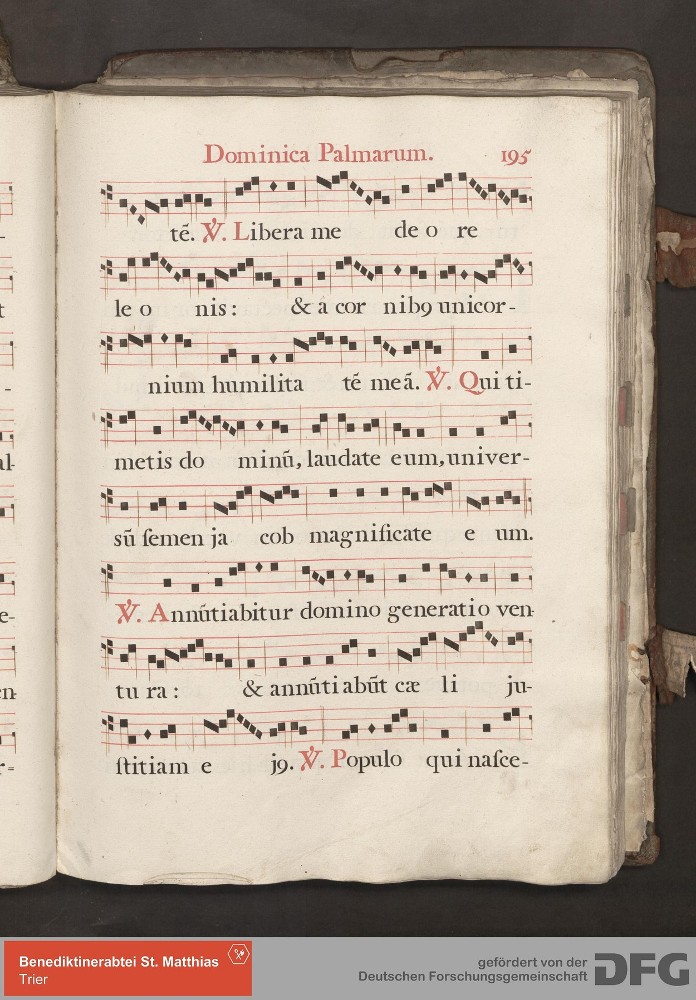 Dominica Palmarum. 195
tē. ℣. Libera me de o re
le o nis : & â cor nibꝯ unicor-
nium humilita tē meā. ℣. Qui ti-
metis do minū, laudate eum, univer-
sū ſemen ja cob magnificate e um.
℣. Annūtiabitur domino generatio ven-
tu ra : & annūtiabūt cæ li ju-
ſtitiam e jꝯ. ℣. Populo qui naſce-
Benediktinerabtei St. Matthias
Trier
gefördert von der
Deutschen Forschungsgemeinschaft
DFG